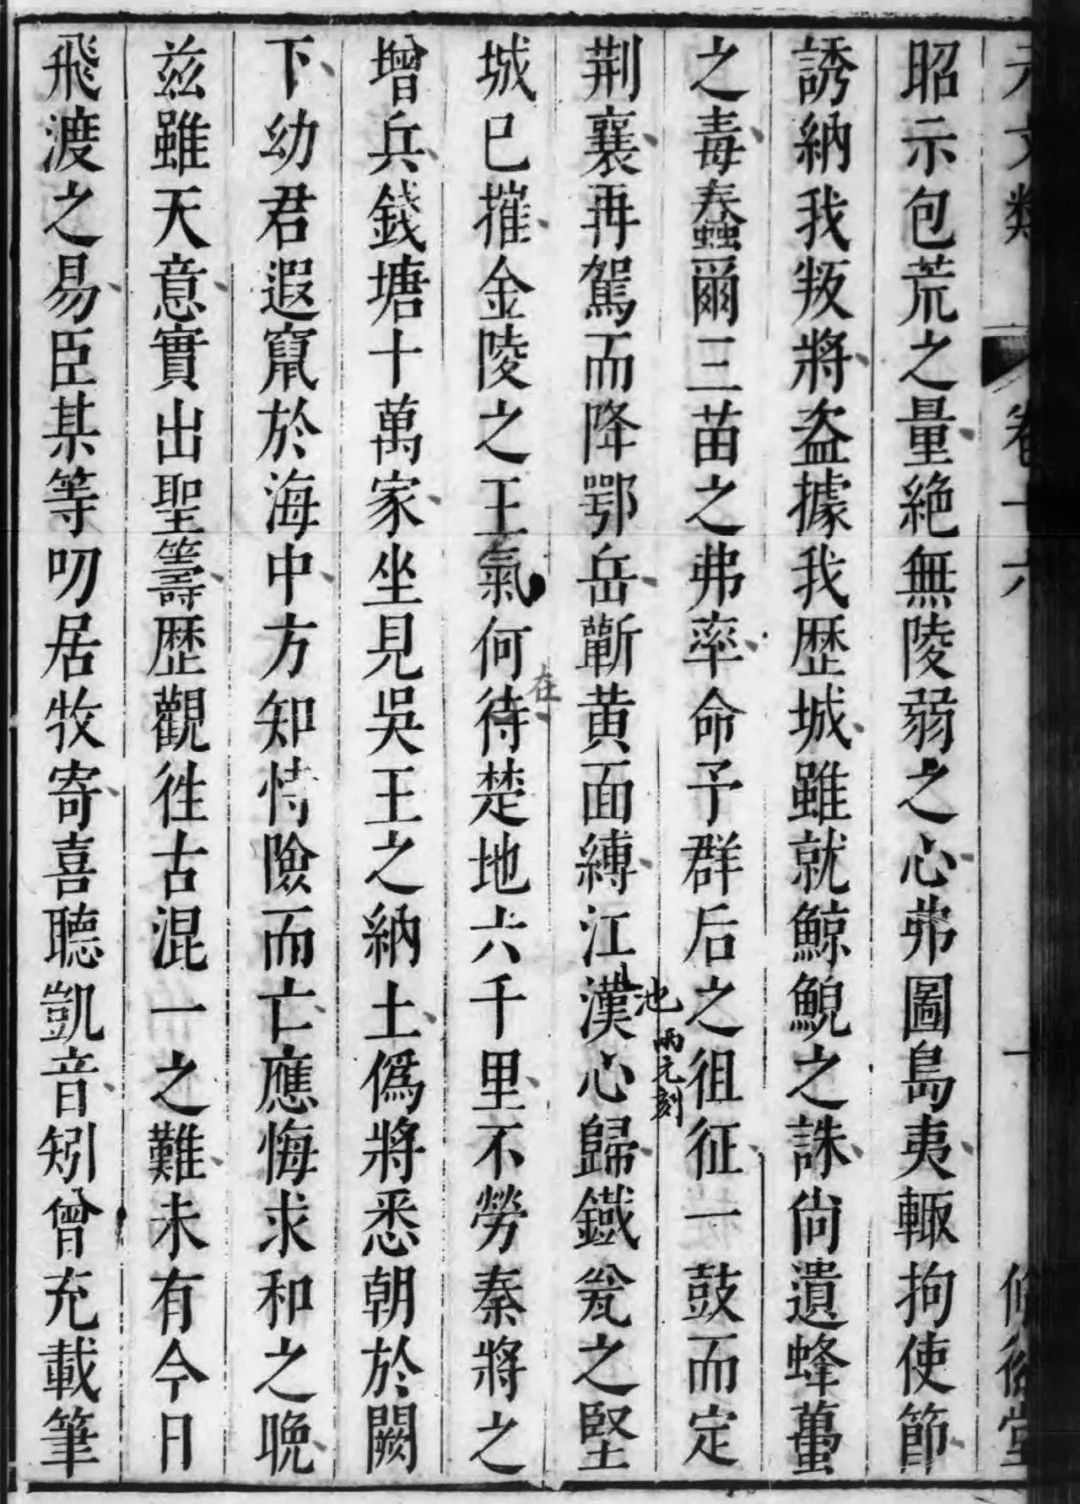 元文類 卷十六 一 堂
昭示包荒之量絶無陵弱之心弗圖島夷輙拘使節
誘納我叛將盗據我歴城雖就鯨鯢之誅尙遺蜂蠆
之毒蠢爾三苗之弗率命予群后之徂征一鼓而定
池 兩元刻
荆襄再駕而降鄂岳蘄黄面縛江漢心歸鐵瓮之堅
在
城已摧金陵之王氣何待楚地六千里不勞秦將之
增兵錢塘十萬家坐見吳王之納土僞將悉朝於闕
下幼君遐竄於海中方知恃險而亡應悔求和之晚
兹雖天意實出聖籌歴觀徃古混一之難未有今日
飛渡之易臣某等叨居牧寄喜聽凱音矧曾充載筆